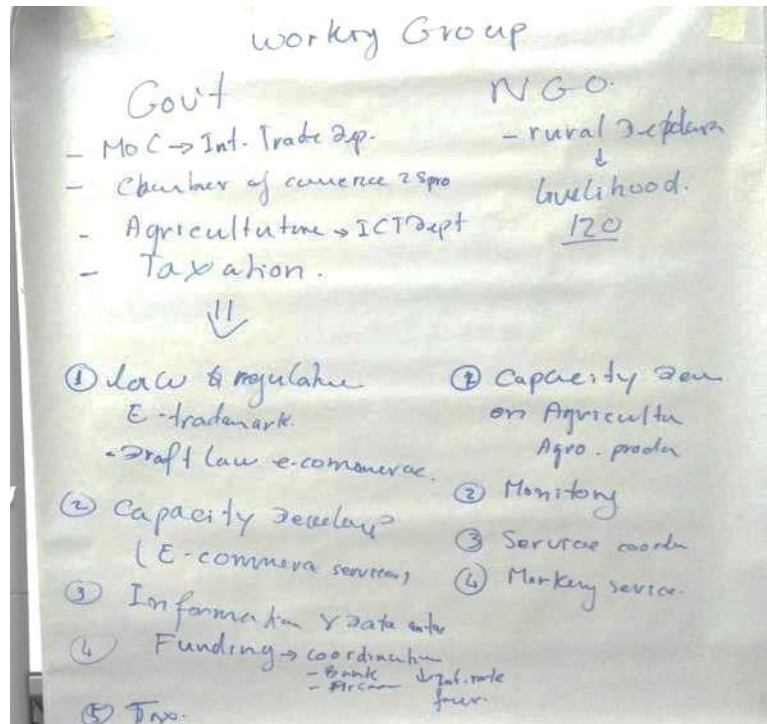 Working Group
Gov't
- MoC → Int. Trade Dep.
- Chamber of commerce 25 pro
- Agriculture → ICT Dept
- Taxation.
⇓
① Law & regulation
E-trademark.
- Draft law e-commerce.
② Capacity Develop
( E-commerce services,
③ Information & Data center
④ Funding → coordination
- Bank ↓ Int. rate
⑤ Tax.
NGO.
- rural Develop
↓
livelihood.
120
① Capacity Dev
on Agricultu
Agro. produ
② Monitoring
③ Service coordn
④ Marketing service.